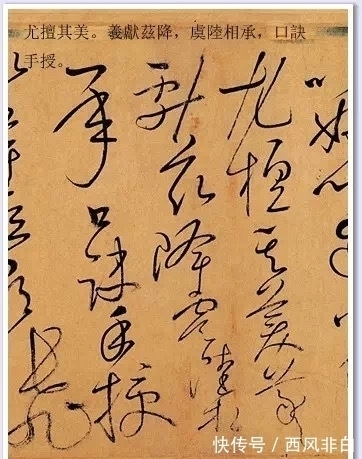 尤擅其美。羲獻茲降，虞陸相承，口訣
手授。
尤擅其美羲
獻茲降虞陸相
承口訣手授
快传号／西风非白